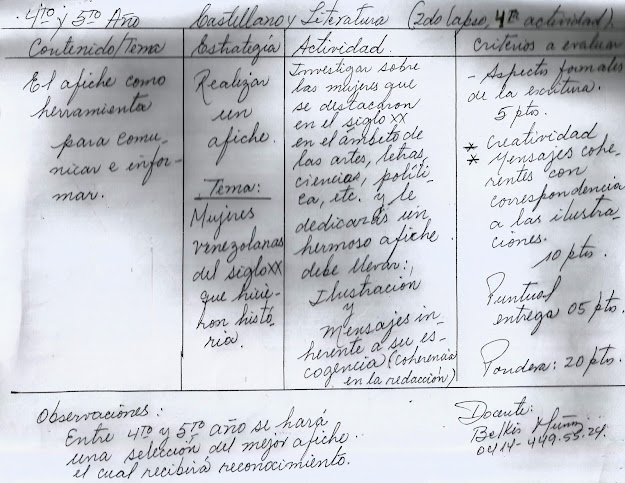 4TO y 5TO Año Castellano y Literatura (2do lapso, 4ta actividad).
Contenido/Tema
El afiche como
herramienta
para comu-
nicar e infor-
mar.
Estrategía
Realizar
un
afiche.
Tema:
Mujeres
venezolanas
del siglo XX
que hicie-
ron histó-
ria.
Actividad.
Investigar sobre
las mujeres que
se destacaron
en el siglo XX
en el ámbito de
las artes, letras,
ciencias, políti-
ca, etc. y le
dedicarás un
hermoso afiche.
debe llevar:,
Ilustración
y
Mensajes in-
herente a su es-
cogencia (Coherencia
en la redacción)
Criterios a evaluar
- Aspectos formales
de la escritura.
5 pts.
* Creatividad
* Mensajes cohe-
rentes con
correspondencia
a las ilustra-
ciones.
10 pts.
Puntual
entrega 05 pts.
Pondera: 20 pts.
Observaciones:
Entre 4TO y 5TO año se hará
una selección del mejor afiche.
el cual recibirá reconocimiento.
Docente:
Belkis Muñoz
0414-449.55.24.